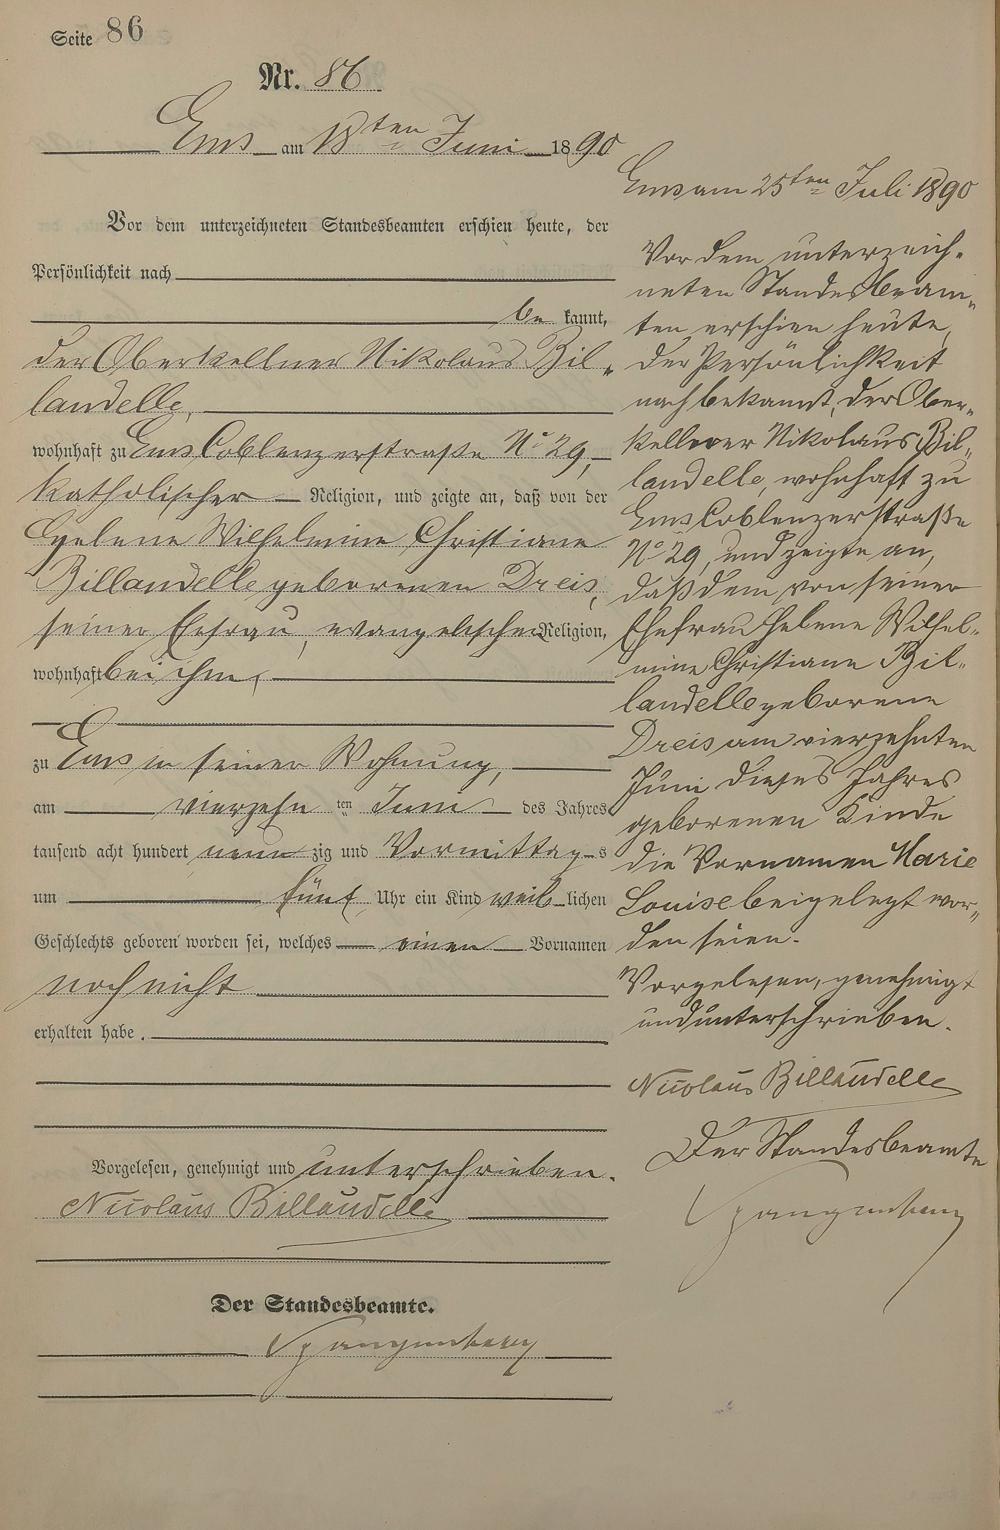 Seite 86
Nr. 86
Ems am 18ten Juni 1890
Vor dem unterzeichneten Standesbeamten erschien heute, der
Persönlichkeit nach
be kannt,
der Oberkellner Nikolaus Bil„
landelle,
wohnhaft zu Ems Coblenzerstraße No 29,
katholischer Religion, und zeigte an, daß von der
Helene Wilhelmine Christiane
Billandelle geborenen Dreis,
seiner Ehefrau, evangelischer Religion,
wohnhaft bei ihm,
zu Ems in seiner Wohnung,
am vierzehn ten Juni des Jahres
tausend acht hundert neun zig und Vormittag s
um fünf Uhr ein Kind weib lichen
Geschlechts geboren worden sei, welches einen Vornamen
noch nicht
erhalten habe.
Vorgelesen, genehmigt und unterschrieben.
Nicolaus Billaudelle
Der Standesbeamte.
Spangenberg
Ems am 25ten Juli 1890
Vor dem unterzeich„
neten Standesbeam„
ten erschien heute,
der Persönlichkeit
nach bekannt, der Ober„
kellner Nikolaus Bil„
landelle, wohnhaft zu
Ems Coblenzerstraße
No 29, und zeigte an,
daß dem von seiner
Ehefrau Helene Wilhel„
mine Christiane Bil„
landelle geborene
Dreis am vierzehnten
Juni dieses Jahres
geborenen Kinde
die Vornamen Marie
Louise beigelegt wor„
den seien.
Vorgelesen, genehmigt
und unterschrieben.
Nicolaus Billaudelle
Der Standesbeamte
Spangenberg